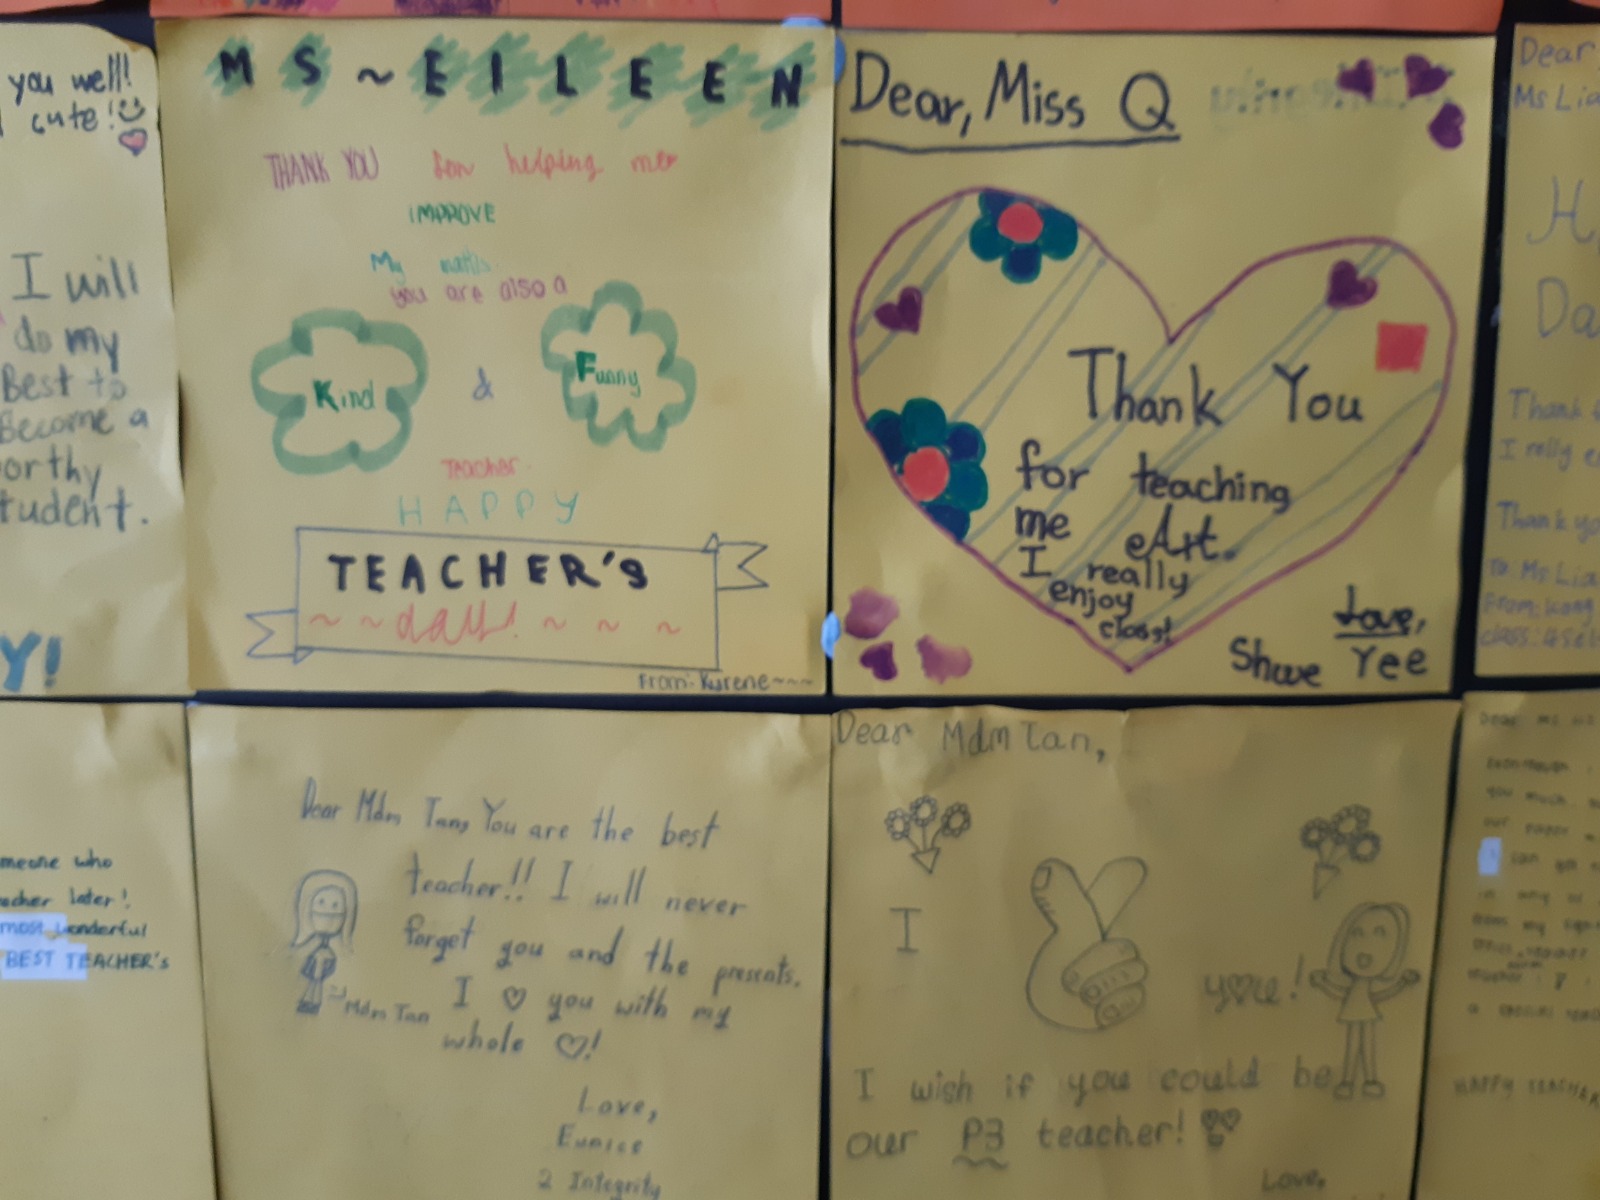 you well!
cute!
I will
do my
Best to
Become a
orthy
tudent.
Y!
MS ~ EILEEN
THANK YOU for helping me
IMPROVE
My maths
you are also a
Kind & Funny
TEACHER
HAPPY
TEACHER's
~ ~ day! ~ ~ ~
From: Kyrene~~~
Dear, Miss Q
Thank You
for teaching
me Art.
I really
enjoy
class!
Love,
Shwe Yee
Dear
Ms Lia
H
Da
Thank
I relly e
Thank yo
To Ms Lia
From:
class:
meone who
eacher later!
most wonderful
BEST TEACHER's
Dear Mdm Tan, You are the best
teacher!! I will never
forget you and the presents.
Mdm Tan
I ♡ you with my
whole ♡!
Love,
Eunice
2 Integrity
Dear Mdm Tan,
I
y♡u!
I wish if you could be
our P3 teacher!
Love,
Dear Ms
you much.
our paper
can
HAPPY TEACHER